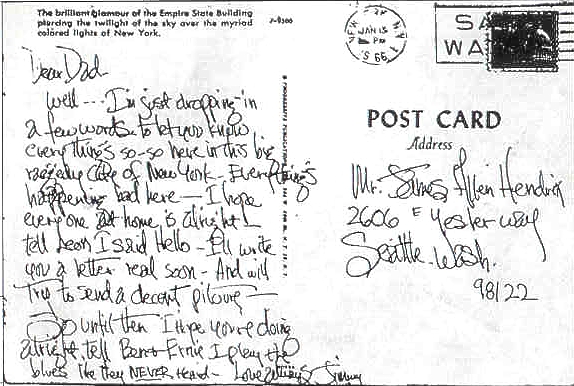 The brilliant glamour of the Empire State Building
piercing the twilight of the sky over the myriad
colored lights of New York.
J-9300
NEW YORK N.Y.
JAN 13
PM
POST CARD
Address
Dear Dad
Well --- I'm just dropping in
a few words to let you know
everything's so-so here in this big
raggedy City of New York - Everything's
happening bad here — I hope
everyone at home is alright
tell Leon I said Hello - I'll write
you a letter real soon - And will
Try to send a decent picture —
So until then I hope you're doing
alright, tell Ben & Ernie I play the
blues like they NEVER Heard - Love always Jimmy
Mr. James Allen Hendrix
2606 E Yesler Way
Seattle. Wash.
98122